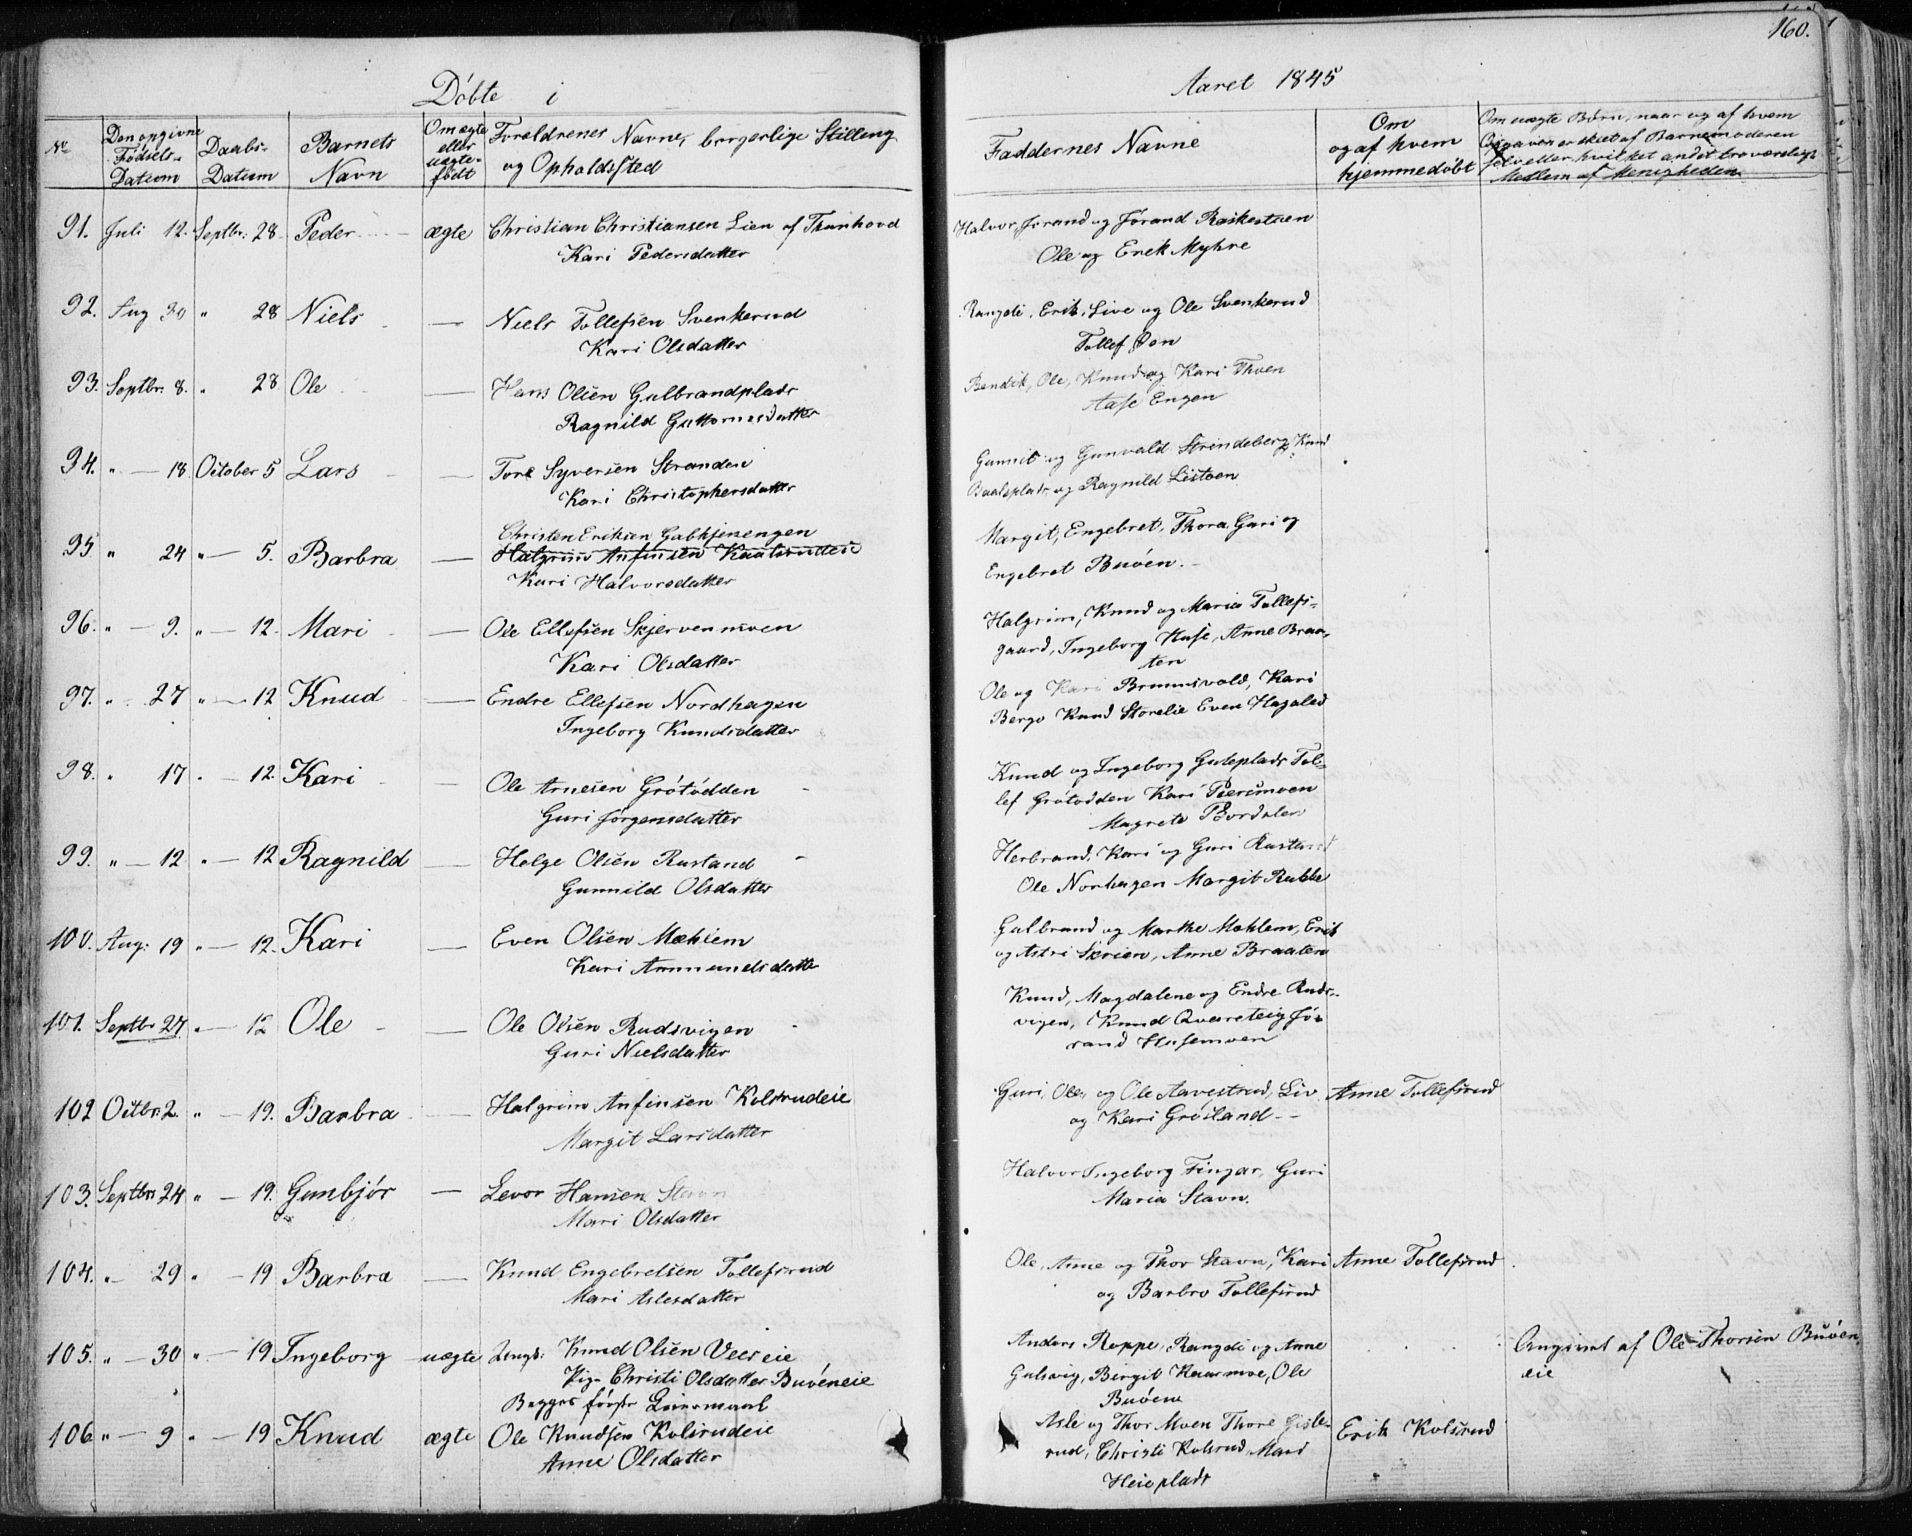 160.
Döbte i
Aaret 1845
No
Den opgivne Fødsels-Datum
Daabs-Datum
Barnets Navn
Om ægte eller uægte født
Forældrenes Navne, borgerlige Stilling og Opholdssted
Faddernes Navne
Om og af hvem hjemmedöbt
Om uægte Børn, naar og af hvem Opgaven er skeet af Barnemoderen selv eller hvilket andet troværdigt Medlem af Menigheden
91. Juli 12. Septbr: 28. Peder ægte Christian Christiansen Lien af Tunhovd
Kari Pedersdatter
Halvor, Jorand og Jörand
Ole og Erick Myhre
92. Aug 30 " 28 Niels — Niels Tollefsen Svenkerud
Kari Olsdatter
Rangdi, Erik, Live og Ole Svenkerud
Tollef Öen
93. Septbr. 8. " 28 Ole — Hans Olsen Gulbrandplads
Ragnild Guttormsdatter
Bendik, Ole, Knud og Kari Thoen
Aase Engen
94. " — 18. October 5 Lars — Tore Syversen Stranden
Kari Christophersdatter
Gunnil og Gunvald Strindeberg, Knud
og Ragnild Listoen
95 " 24 " — 5. Barbra — Christen Eriksen
Halgrim Anfinsen
Kari Halvorsdatter
Margit, Engebret, Thora, Guri og
Engebret Buöen.
96. " — 9. " — 12. Mari — Ole Ellefsen
Kari Olsdatter
Halgrim, Knud og Maria Tollefs-
gaard, Ingeborg, Anne Braa-
ten
97. " 27 " — 12 Knud — Endre Ellefsen Nordhagen
Ingeborg Knudsdatter
Ole og Kari Brunsvold, Kari
Berge Knud Storelie Even Hagaled
98. " 17 " — 12. Kari — Ole Arnesen Grötödden
Guri Jörgensdatter
Knud og Ingeborg Guleplads Tol-
lef Grötödden Kari
Magrete
99. " — 12 " — 12 Ragnild — Helge Olsen Rustand
Gunnild Olsdatter
Herbrand, Kari og Guri Rustand
Ole Norhagen Margit
100. Aug: 19 " — 12. Kari — Even Olsen
Kari Ammundsdatt
Gulbrand og Marthe, Erik
og Astri Skrien, Anne Braaten
101. Septbr 27. " — 12 Ole — Ole Olsen Rudsvigen
Guri Nielsdatter
Knud, Magdalene og Endre Ruds-
vigen, Knud Jö-
rand Husemoen
102 Octbr: 2. " — 19. Barbra — Halgrim Anfinsen Kolsrudeie
Margit Larsdatter
Guri, Ole, og Ole Aavestrud, Liv
og Kari Grösland
Anne Tollefsrud
103. Septbr: 24 " — 19. Gunbjör — Levor Hansen Stavn
Mari Olsdatter
Halvor Ingeborg, Guri
Maria Stavn.
104. " 29 " — 19 Barbra — Knud Engebretsen Tollefsrud
Mari Aslesdatter
Ole, Anne og Thor Stavn, Kari
og Barbro Tollefsrud
Anne Tollefsrud
105. " — 30 " — 19 Ingeborg uægte Ungk: Knud Olsen
Pig. Christi Olsdatter Buöneie
Begges förste Leiermaal
Anders Roppe, Rangdi og Anne
Gulsvig, Birgit, Ole
Buöen
Angivet af Ole Thorsen Buöen
eie
106 " — 9 " — 19 Knud ægte Ole Knudsen Kolsrudeie
Anne Olsdatter
Asle og Thor Moen Thore Gisle-
rud, Christi Kolsrud
Heieplads
Erik Kolsrud